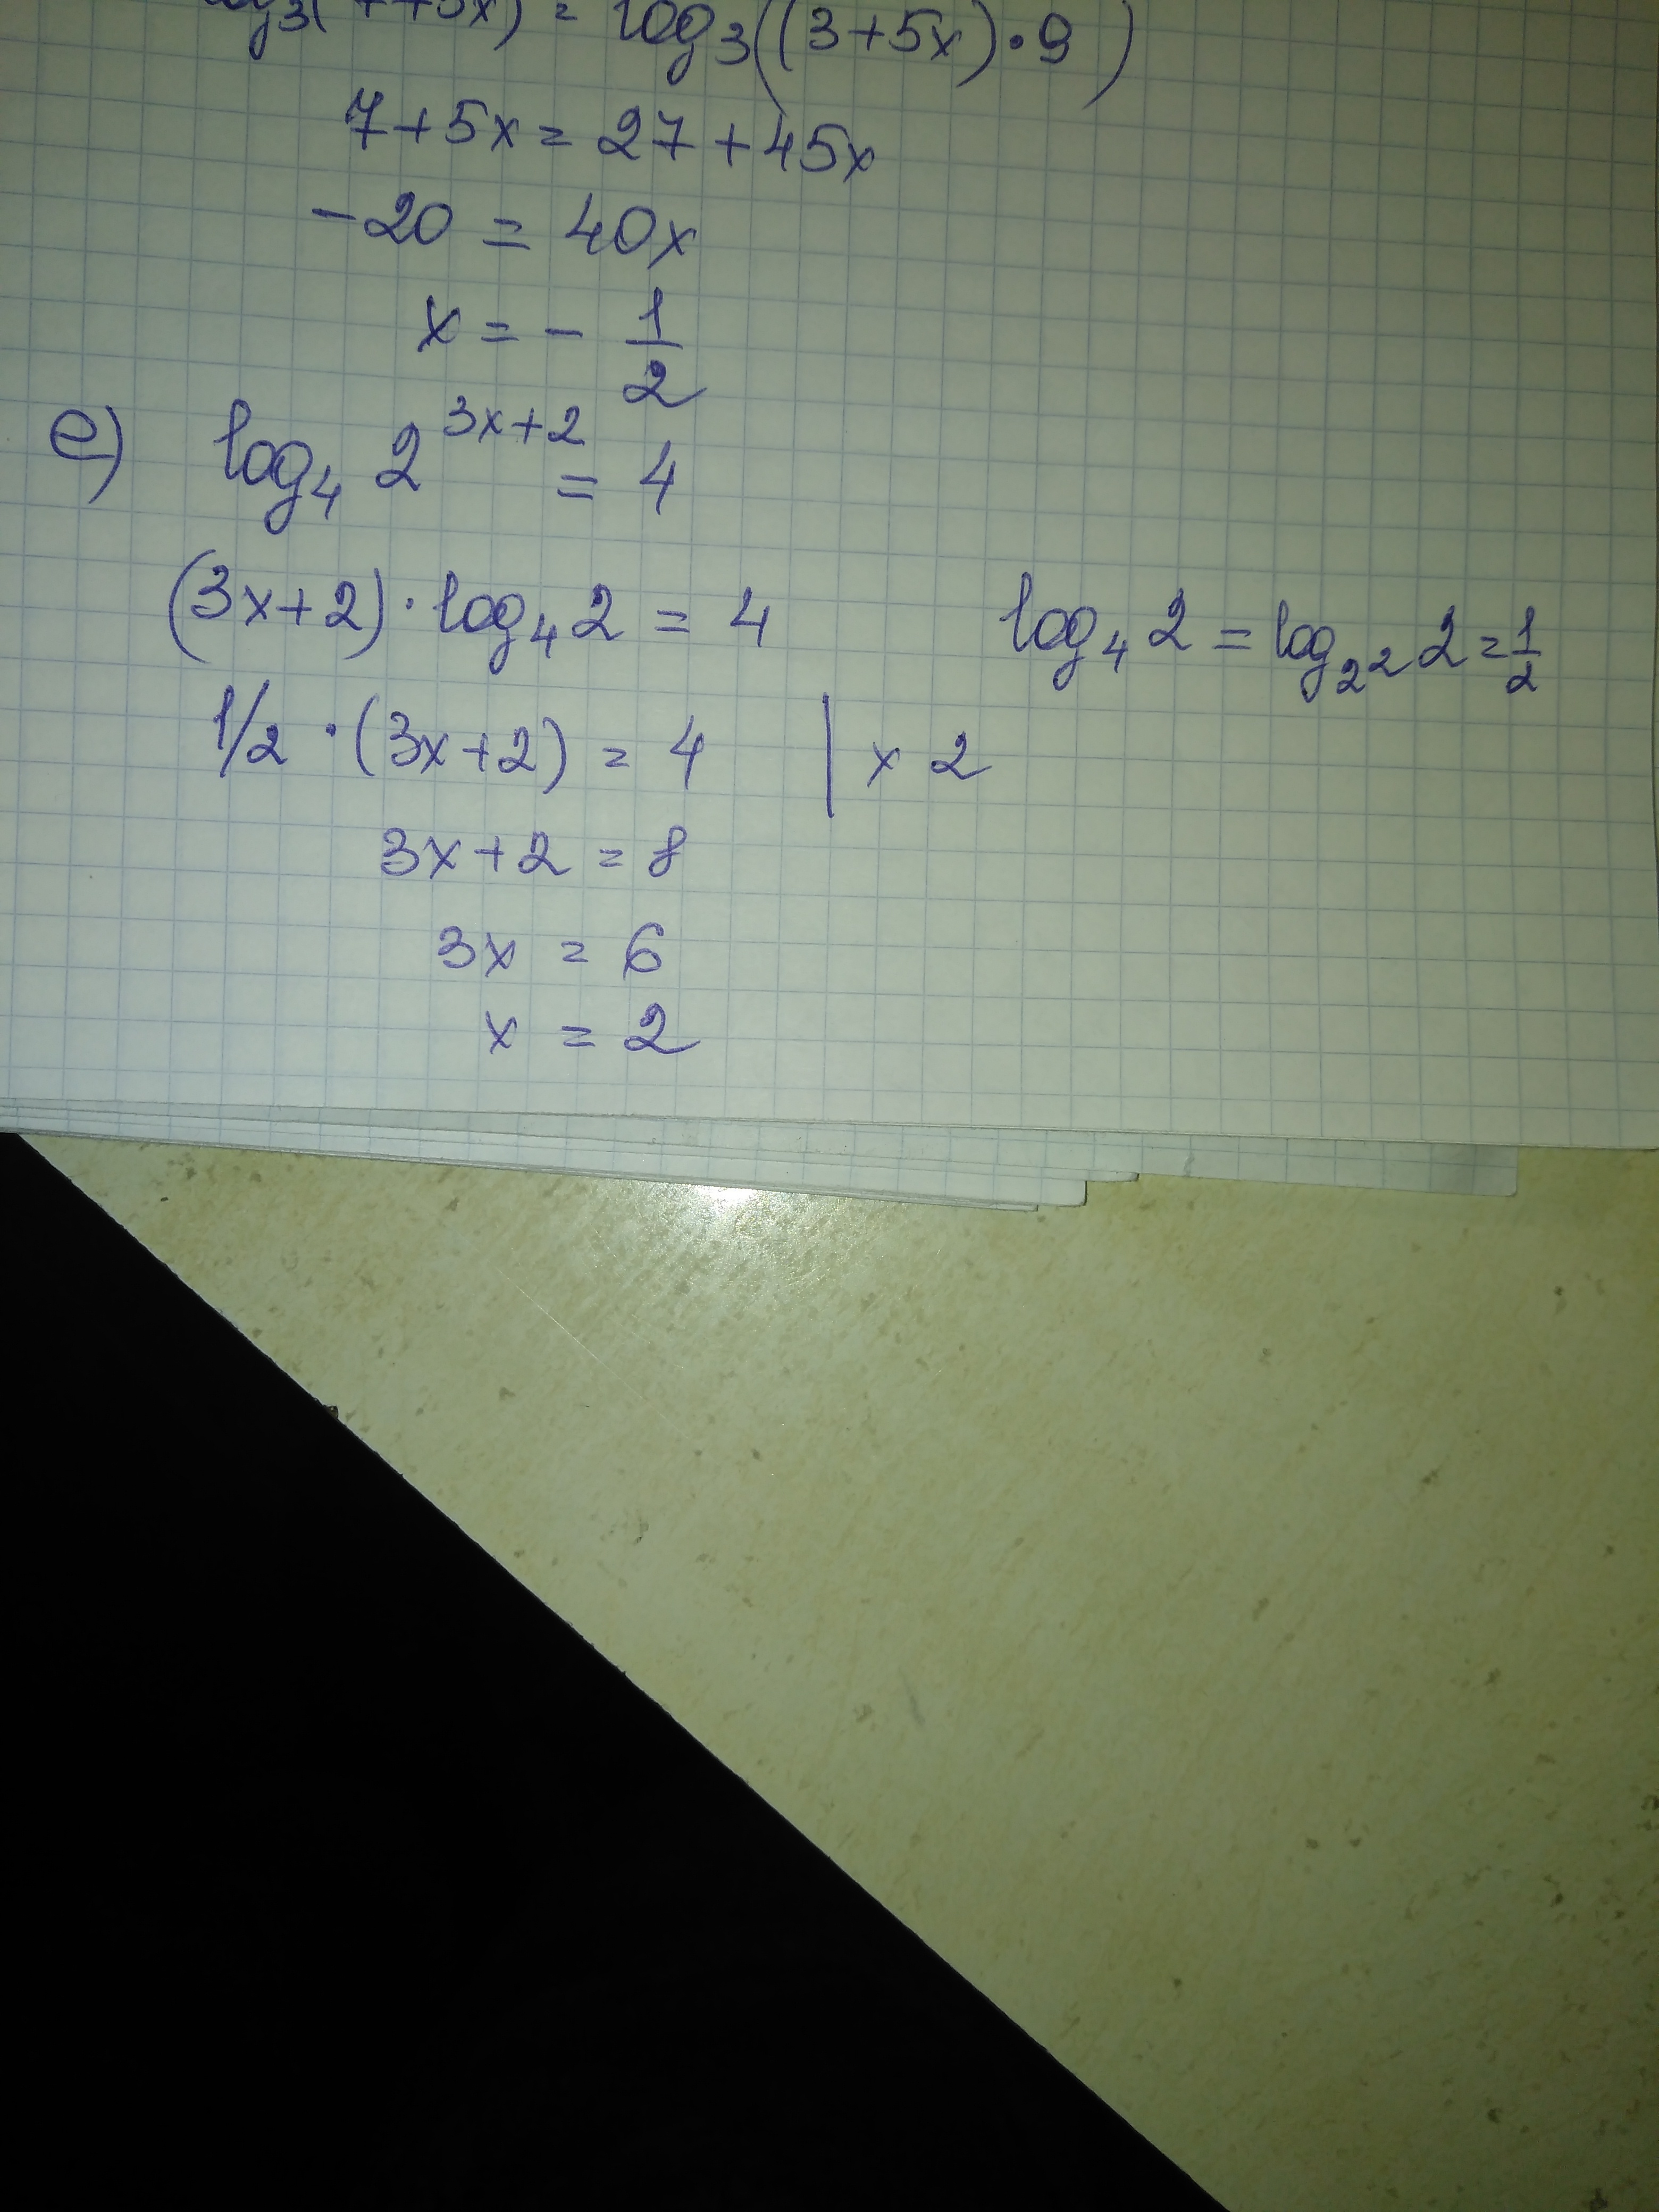 log₃(7+5x) = log₃((3+5x)·9)
7+5x = 27+45x
-20 = 40x
x = - 1/2
e) log₄ 2^(3x+2) = 4
(3x+2)·log₄2 = 4 log₄2 = log_(2²) 2 = 1/2
1/2 ·(3x+2) = 4 | x 2
3x+2 = 8
3x = 6
x = 2